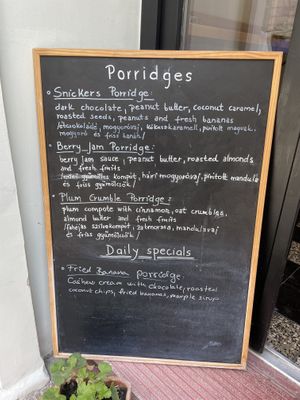 Porridges
Snickers Porridge:
dark chocolate, peanut butter, coconut caramel,
roasted seeds, peanuts and fresh bananas
/étcsokoládé, mogyoróvaj, kókuszkaramell, pirított magvak,
mogyoró és friss banán/
Berry-Jam Porridge:
berry jam sauce, peanut butter, roasted almonds
and fresh fruits
kompót, házi mogyoróvaj, pirított mandula
és friss gyümölcsök/
Plum Crumble Porridge:
plum compote with cinnamon, oat crumbles,
almond butter and fresh fruits
/fahéjas szilvakompót, zabmorzsa, mandulavaj
és friss gyümölcsök/
Daily specials
Fried Banana porridge.
Cashew cream with chocolate, roasted
coconut chips, fried bananas, marple sirup